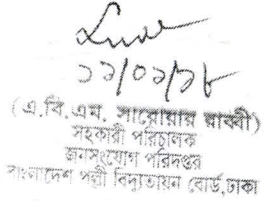 ১১/০২/১৮
(এ.বি.এম. সারোয়ার রাব্বী)
সহকারী পরিচালক
জনসংযোগ পরিদপ্তর
বাংলাদেশ পল্লী বিদ্যুতায়ন বোর্ড, ঢাকা